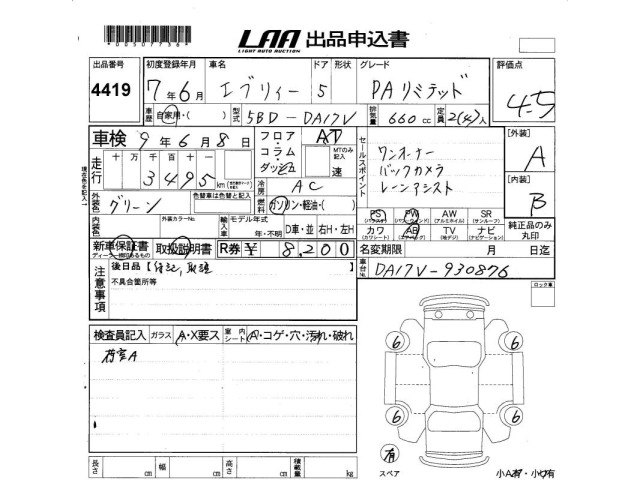 LAA 出品申込書
LIGHT AUTO AUCTION
出品番号 初度登録年月 車名 ドア 形状 グレード 評価点
4419 7年6月 エブリィー 5 PAリミテッド 4.5
車歴 自家用・( ) 型式 5BD-DA17V 排気量 660 cc 定員 2(4)人
車検 9年6月8日 フロア・コラム・ダッシュ AT セールスポイント [外装]
MTのみ記入 速 ワンオーナー A
走行 十万千百十一 バックカメラ
3495 km 冷房 AC レーンアシスト [内装]
色替車は色替と記入 燃料 ガソリン・軽油・( ) B
外装色 グリーン PS PW AW SR
(パワステ) (パワーウインド) (アルミホイル) (サンルーフ)
内装色 外装カラーNo. 輸入車 モデル年式 年・不明 D車・並 右H・左H カワ AB TV ナビ 純正品のみ丸印
(カワシート) (エアバッグ) (地デジ) (ナビゲーション)
新車保証書 取扱説明書 R券 ¥ 8,200 名変期限 月 日迄
ディーラー捺印あるもの
注意事項 後日品【保記,取説 車台No. DA17V-930876
不具合箇所等 ロック車
検査員記入 ガラス A・X要ス 室内シート A・コゲ・穴・汚れ・破れ
荷室A
6 6
6 6
有
長さ cm 幅 cm 高さ cm 積載量 kg スペア 小A有・小ウ有